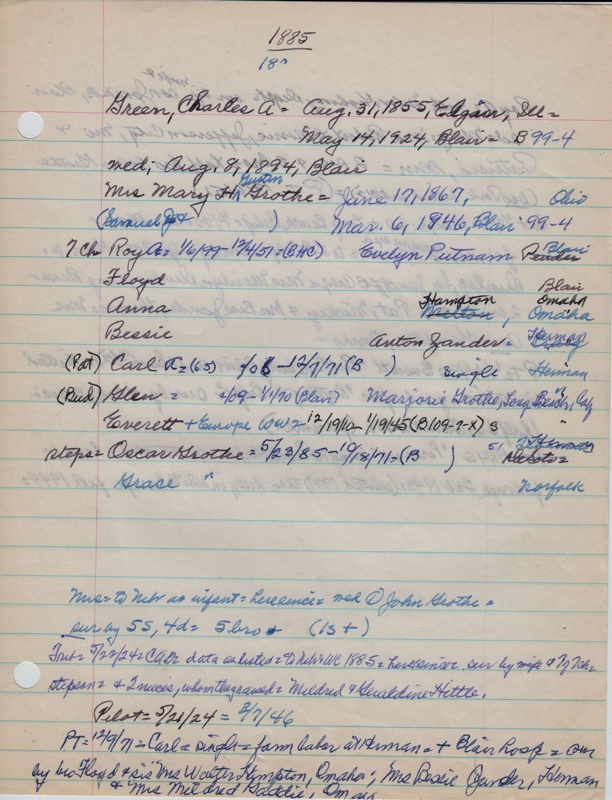 1885
18"
Green, Charles A = Aug. 31, 1855, Edgar, Ill =
May 14, 1924, Blair = B 99-4
med; Aug. 8, 1894, Blair
Mrs Mary H Gustin Grothe = June 17, 1867, Ohio
(Samuel J + ) Mar. 6, 1946, Blair 99-4
7 Ch Roy A = 1/6/99 - 12/4/51 = (BHC) Evelyn Putnam Blair
Floyd Blair
Anna Hampton, Omaha Omaha
Bessie Anton Zander = Herman
(Pat) Carl = (65) - 12/7/71 (B ) single Herman
(Bud) Glen = /09 - 1/1/70 (Blair) Marjorie Grothe, Long Beach, Calif
Everett + Europe WW = 12/19/10 - 1/19/45 (B 109-2-X) s "
steps = Oscar Grothe = 5/23/85 - 10/18/71 = (B )
Grace " Norfolk
Mrs = to Nebr as infant = here since = med ① John Grothe =
sur by 5s, 4d = 5 bro + (1s +)
Trib = 5/22/24 = C A Gr data as listed = to Neb & WC 1885 = here since = sur by wife & 7
stepson = & 2 nieces, whom they raised = Mildred & Geraldine Hittle.
Pilot = 5/21/24 = 3/7/46
PT = 12/9/71 = Carl = single = farm labor at Herman = + Blair hosp = sur
by bro Floyd & sis Mrs Walter Hampton, Omaha; Mrs Bessie Zander, Herman
& Mrs Mildred